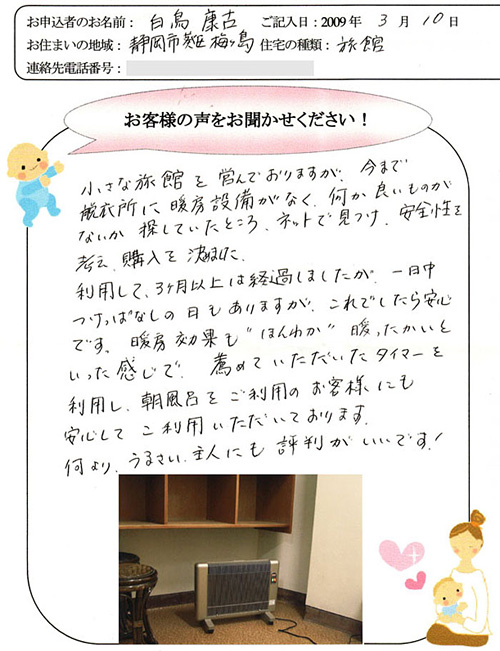 お申込者のお名前： 白鳥 康古 ご記入日：2009年 3月10日
お住まいの地域：静岡市葵区梅ヶ島 住宅の種類：旅館
連絡先電話番号：
お客様の声をお聞かせください！
小さな旅館を営んでおりますが、今まで
脱衣所に暖房設備がなく、何か良いものが
ないか探していたところ、ネットで見つけ、安全性を
考え、購入を決めました。
利用して、3ヶ月以上は経過しましたが、一日中
つけっぱなしの日もありますが、これでしたら安心
です。暖房効果も“ほんわか”暖ったかいと
いった感じで、薦めていただいたタイマーを
利用し、朝風呂をご利用のお客様にも
安心してご利用いただいております。
何より、うるさい主人にも評判がいいです！